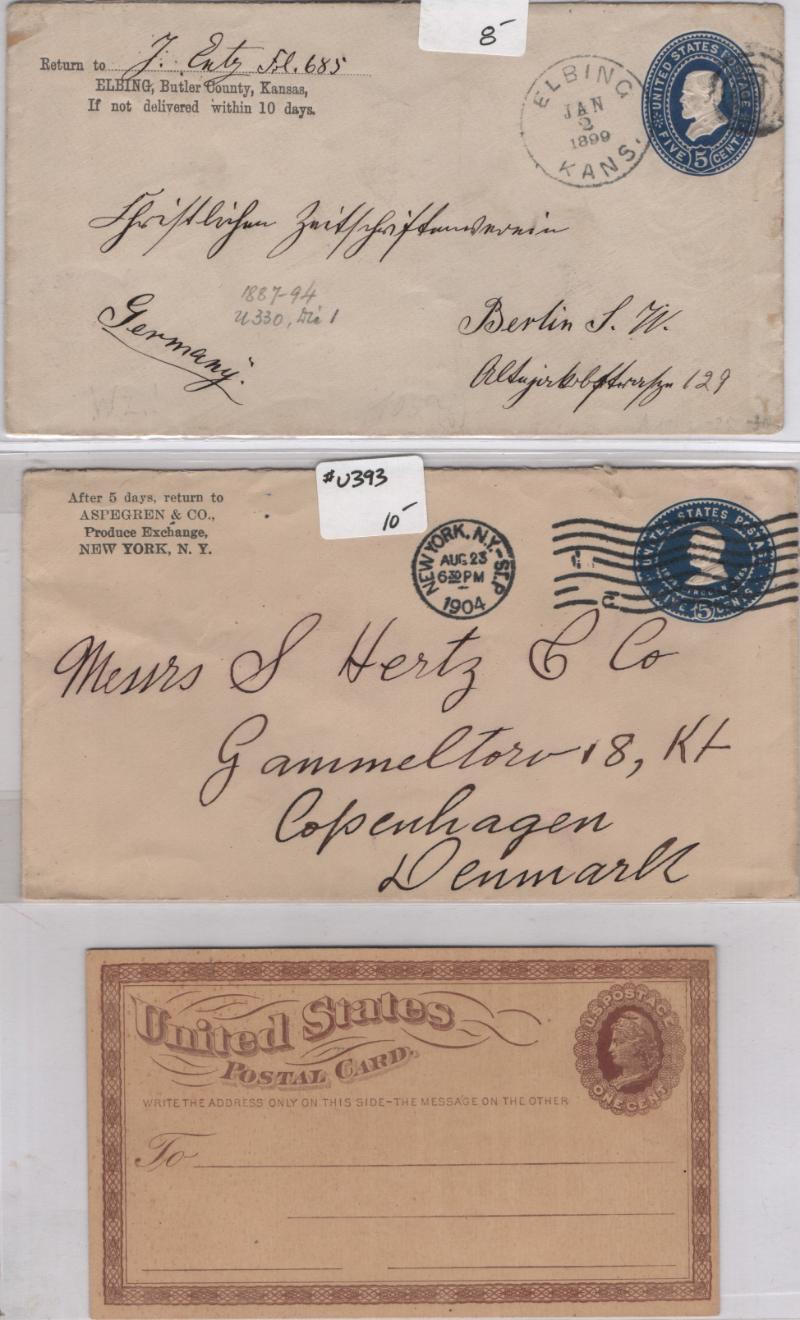 8-
Return to J. Entz
ELBING, Butler County, Kansas,
If not delivered within 10 days.
ELBING
JAN
2
1899
KANS.
UNITED STATES POSTAGE
FIVE 5 CENTS
Christlichen Zeitschriftenverein
1887-94
U330, Die 1
Germany.
Berlin S. W.
129
#U393
10-
After 5 days, return to
ASPEGREN & CO.,
Produce Exchange,
NEW YORK, N. Y.
NEW YORK, N.Y.-ST.P
AUG 23
6 30 PM
1904
UNITED STATES POSTAGE
FIVE 5 CENTS
Messrs S Hertz & Co
Gammeltorv 18, Kt
Copenhagen
Denmark
United States
POSTAL CARD.
WRITE THE ADDRESS ONLY ON THIS SIDE-THE MESSAGE ON THE OTHER
U.S. POSTAGE
ONE CENT
To